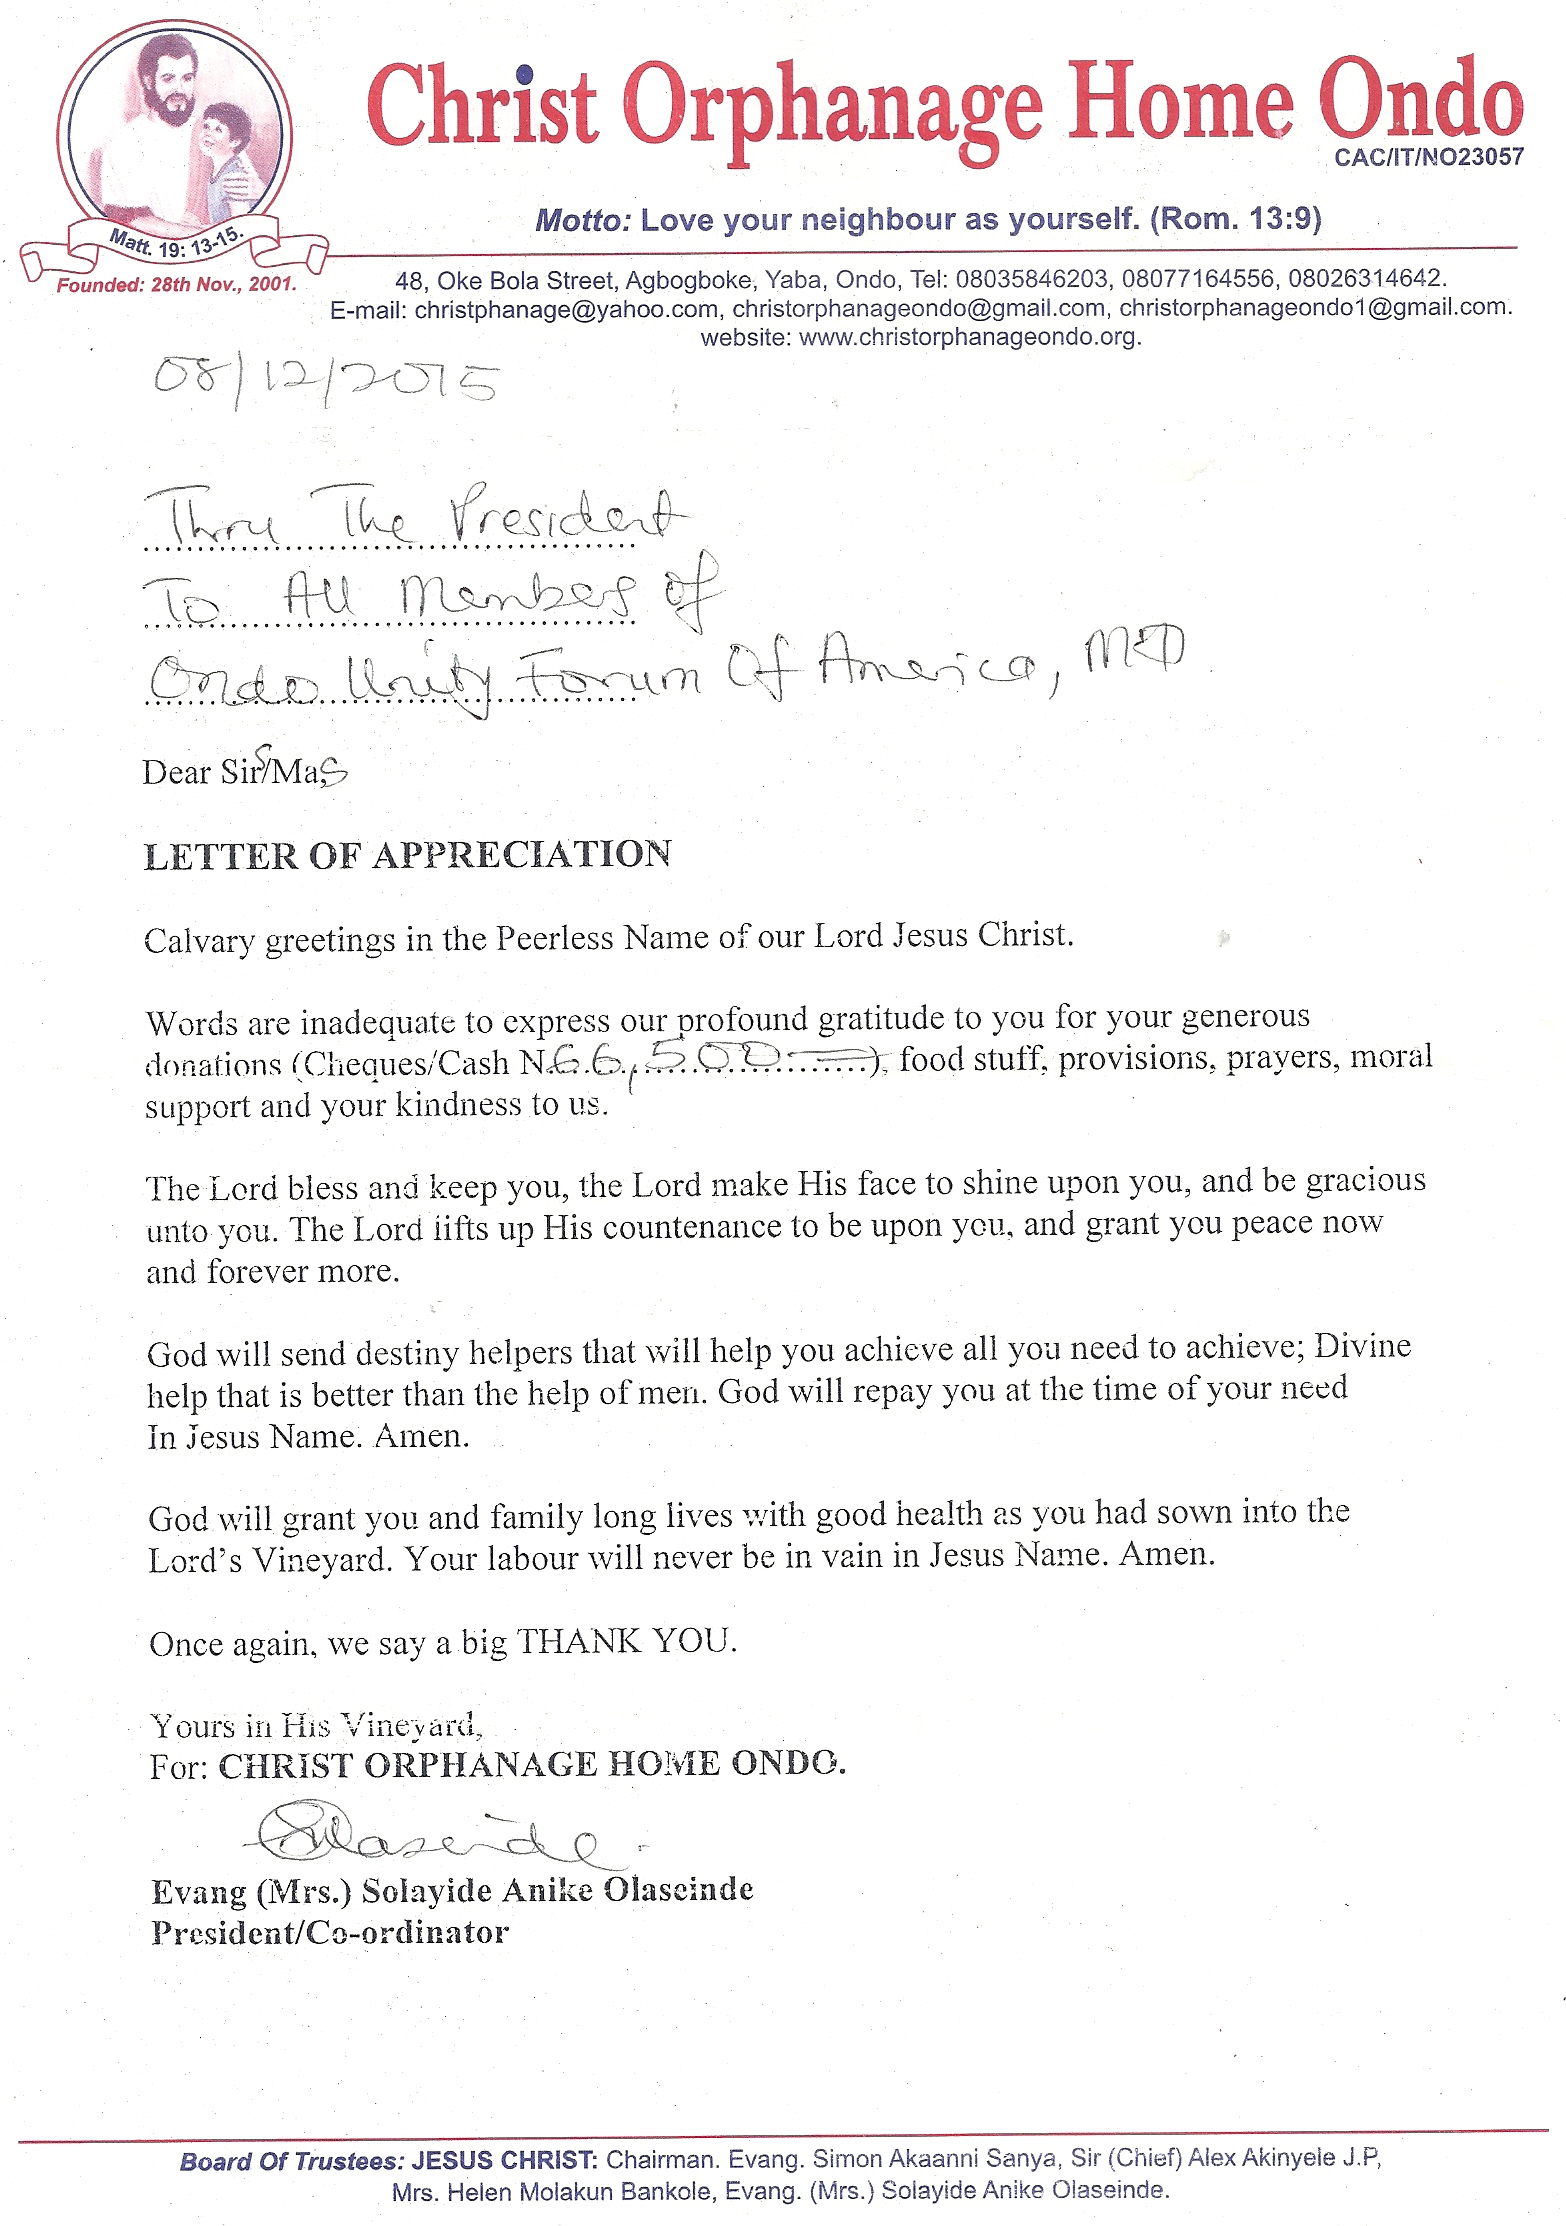 Christ Orphanage Home Ondo
CAC/IT/NO23057
Motto: Love your neighbour as yourself. (Rom. 13:9)
Matt. 19: 13-15.
Founded: 28th Nov., 2001.
48, Oke Bola Street, Agbogboke, Yaba, Ondo, Tel: 08035846203, 08077164556, 08026314642.
E-mail: christphanage@yahoo.com, christorphanageondo@gmail.com, christorphanageondo1@gmail.com.
website: www.christorphanageondo.org.
08/12/2015
Thru The President
To All Members of
Ondo Unity Forum Of America, MD
Dear Sirs/Mas
LETTER OF APPRECIATION
Calvary greetings in the Peerless Name of our Lord Jesus Christ.
Words are inadequate to express our profound gratitude to you for your generous
donations (Cheques/Cash N66,500:=), food stuff, provisions, prayers, moral
support and your kindness to us.
The Lord bless and keep you, the Lord make His face to shine upon you, and be gracious
unto you. The Lord lifts up His countenance to be upon you, and grant you peace now
and forever more.
God will send destiny helpers that will help you achieve all you need to achieve; Divine
help that is better than the help of men. God will repay you at the time of your need
In Jesus Name. Amen.
God will grant you and family long lives with good health as you had sown into the
Lord's Vineyard. Your labour will never be in vain in Jesus Name. Amen.
Once again, we say a big THANK YOU.
Yours in His Vineyard,
For: CHRIST ORPHANAGE HOME ONDO.
SOlaseinde
Evang (Mrs.) Solayide Anike Olaseinde
President/Co-ordinator
Board Of Trustees: JESUS CHRIST: Chairman. Evang. Simon Akaanni Sanya, Sir (Chief) Alex Akinyele J.P,
Mrs. Helen Molakun Bankole, Evang. (Mrs.) Solayide Anike Olaseinde.